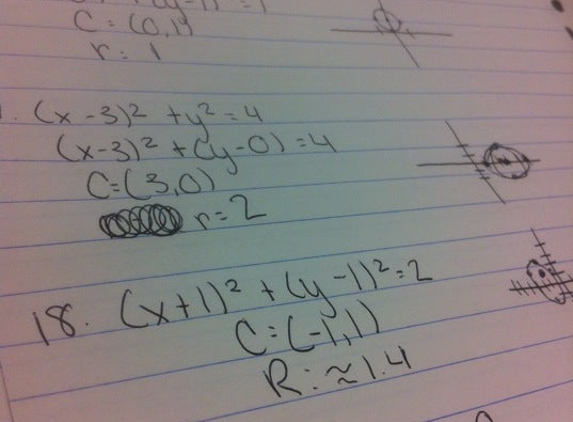 C = (0,1)
r: 1
(x-3)² + y² = 4
(x-3)² + (y-0) = 4
C=(3,0)
r=2
18. (x+1)² + (y-1)² = 2
C:(-1,1)
R: ≈1.4